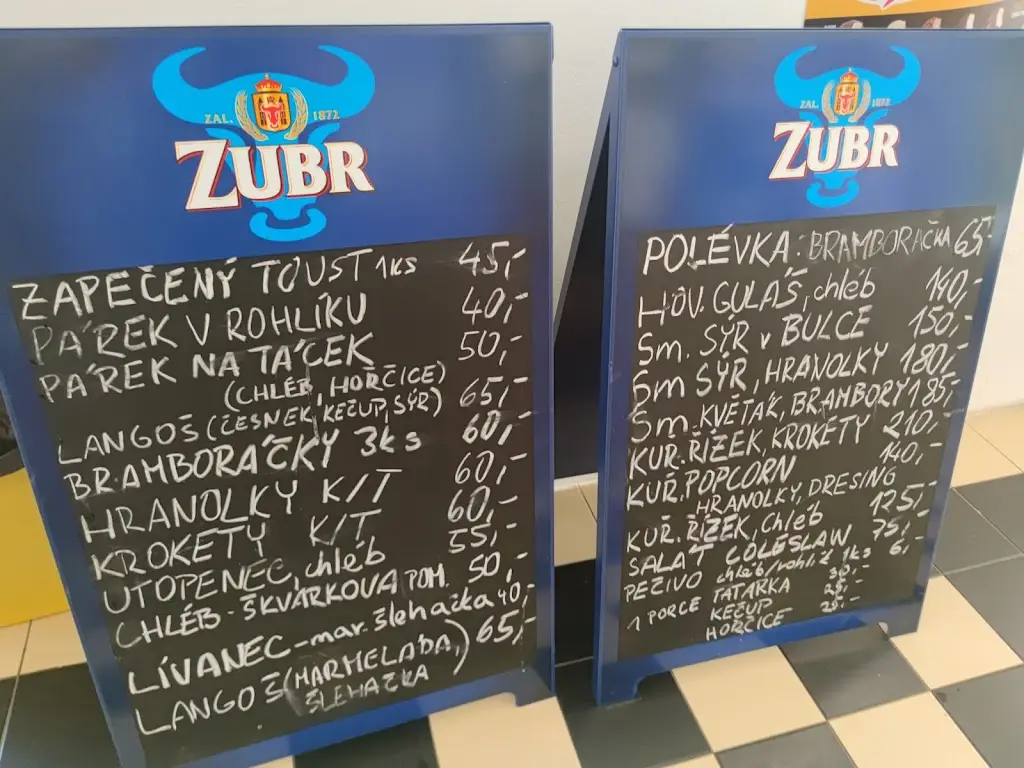 ZAL. 1872
ZUBR
ZAPEČENÝ TOUST 1KS 45,-
PÁREK V ROHLÍKU 40,-
PÁREK NA TÁCEK 50,-
(CHLÉB, HOŘČICE)
LANGOŠ (ČESNEK, KEČUP, SÝR) 65,-
BRAMBORÁČKY 3ks 60,-
HRANOLKY K/T 60,-
KROKETY K/T 60,-
UTOPENEC, chléb 55,-
CHLÉB - ŠKVARKOVÁ POM. 50,-
LÍVANEC - mar. šlehačka 40,-
LANGOŠ (MARMELADA, 65,-
ŠLEHAČKA)
ZAL. 1872
ZUBR
POLÉVKA: BRAMBORAČKA 65-
HOV. GULÁŠ, chléb 140,-
Sm. SÝR v BULCE 150,-
Sm SÝR, HRANOLKY 180,-
Sm. KVĚTÁK, BRAMBORY 185,-
KUŘ. ŘÍZEK, KROKETY 210,-
KUŘ. POPCORN 140,-
HRANOLKY, DRESING
KUŘ. ŘÍZEK, chléb 125,-
SALÁT COLESLAW 75,-
PEČIVO chléb/rohlík 1ks 6,-
1 PORCE TATARKA
KEČUP
HOŘČICE